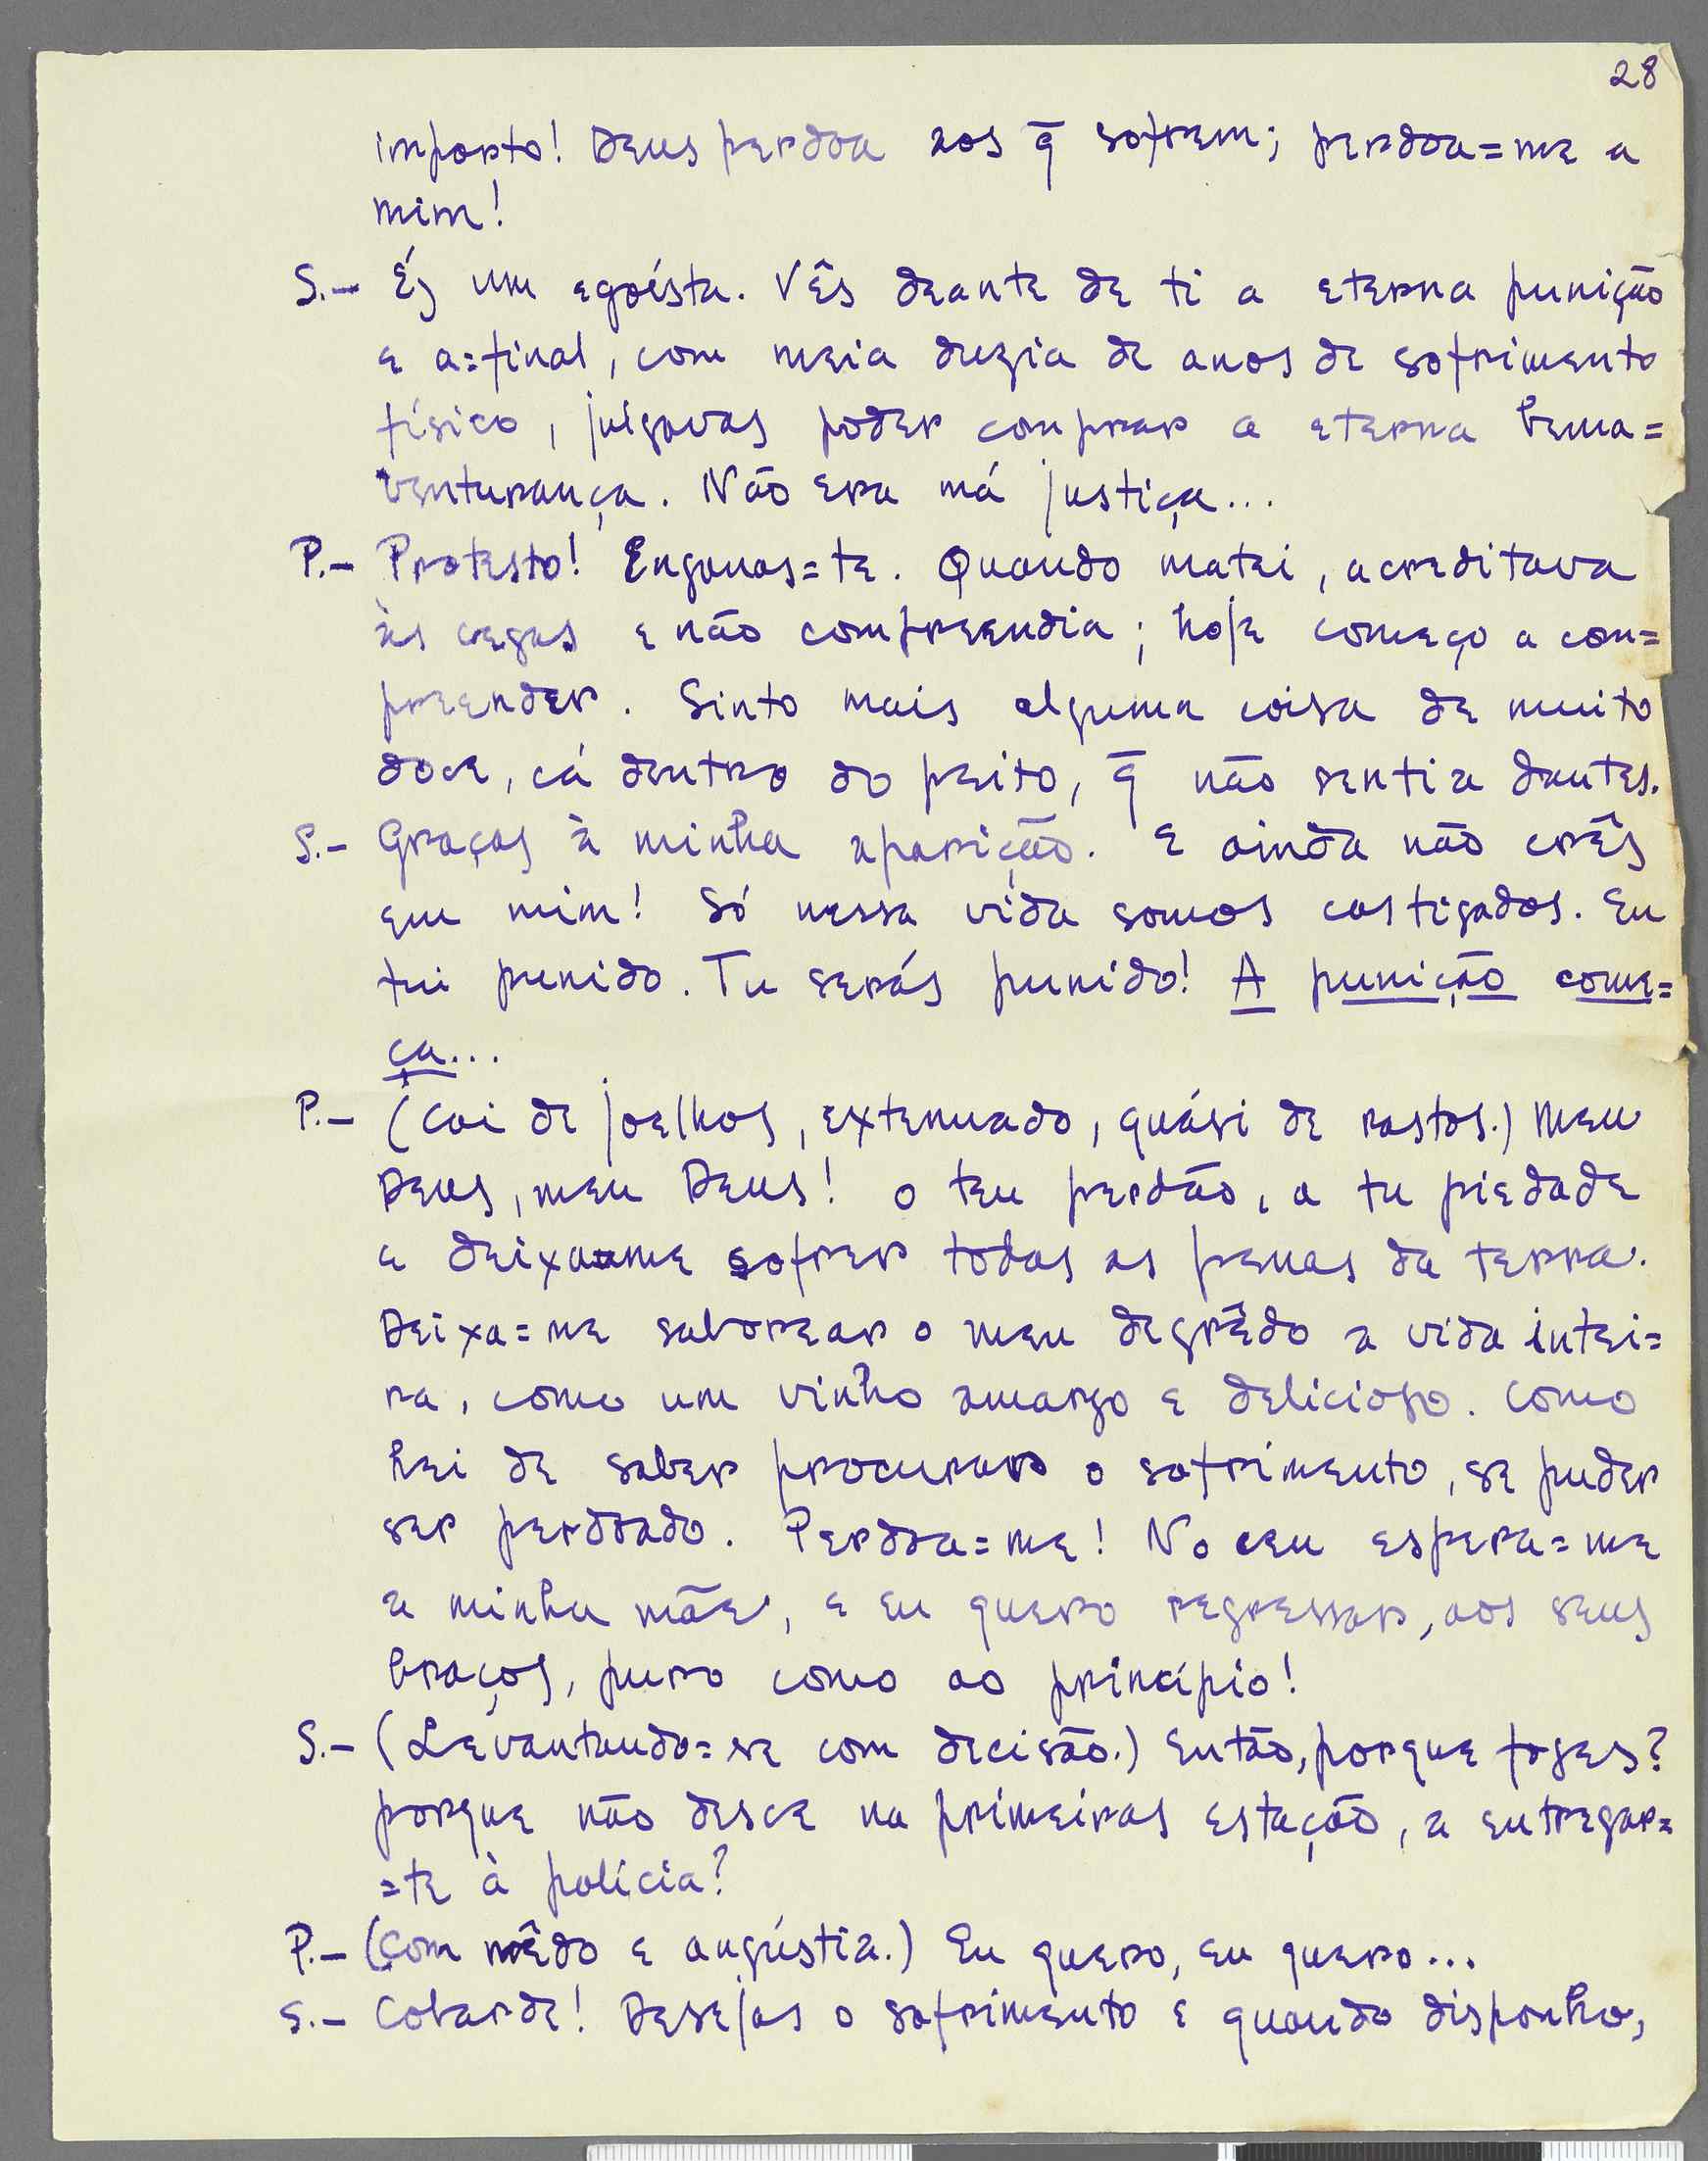 28
importo! Deus perdoa aos q̄ sofrem; perdoa=me a
mim!
S.– És um egoísta. Vês deante de ti a eterna punição
e a=final, com meia duzia de anos de sofrimento
físico, julgavas poder comprar a eterna bema=
venturança. Não era má justiça...
P.– Protesto! Enganas=te. Quando matei, acreditava
às cegas e não compreendia; hoje começo a com=
preender. Sinto mais alguma coisa de muito
doce, cá dentro do peito, q̄ não sentia dantes.
S.– Graças à minha aparição. E ainda não crês
em mim! Só nessa vida somos castigados. Eu
fui punido. Tu serás punido! A punição come=
ça...
P.– (Cai de joelhos, extenuado, quási de rastos.) Meu
Deus, meu Deus! o teu perdão, a tu piedade
e deixa=me sofrer todas as penas da terra.
Deixa=me saborear o meu degrêdo a vida intei=
ra, como um vinho amargo e delicioso. Como
hei de saber procurar o sofrimento, se puder
ser perdoado. Perdoa=me! No ceu espera=me
a minha mãe, e eu quero regressar, aos seus
braços, puro como ao princípio!
S.– (Levantando=se com decisão.) Então, porque foges?
porque não desce na primeiras estação, a entregar=
=te à polícia?
P.– (Com mêdo e angústia.) Eu quero, eu quero...
S.– Cobarde! Desejas o sofrimento e quando disponho,